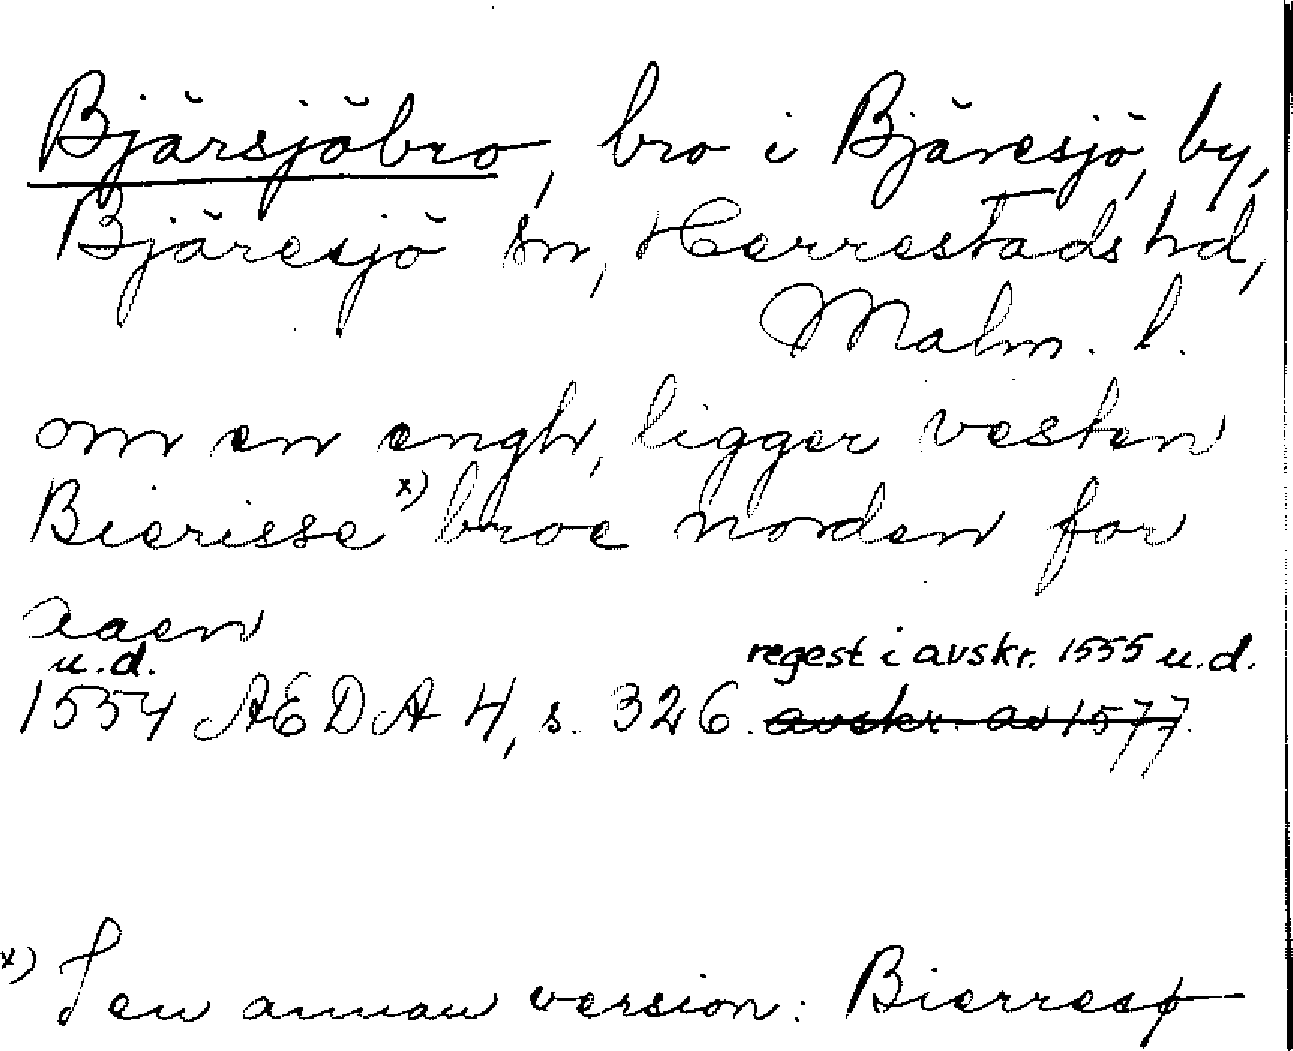 Bjärsjöbro, bro i Bjäresjö, by,
Bjäresjö sn, Herrestads hd,
Malm. l.
om en engh, ligger vesten
Bierisse x) broe norden for
aaen
u.d. regest i avskr. 1555 u.d.
1554 AEDA 4, s. 326. avskr. av 1577.
x) I en annan version: Bierresø-